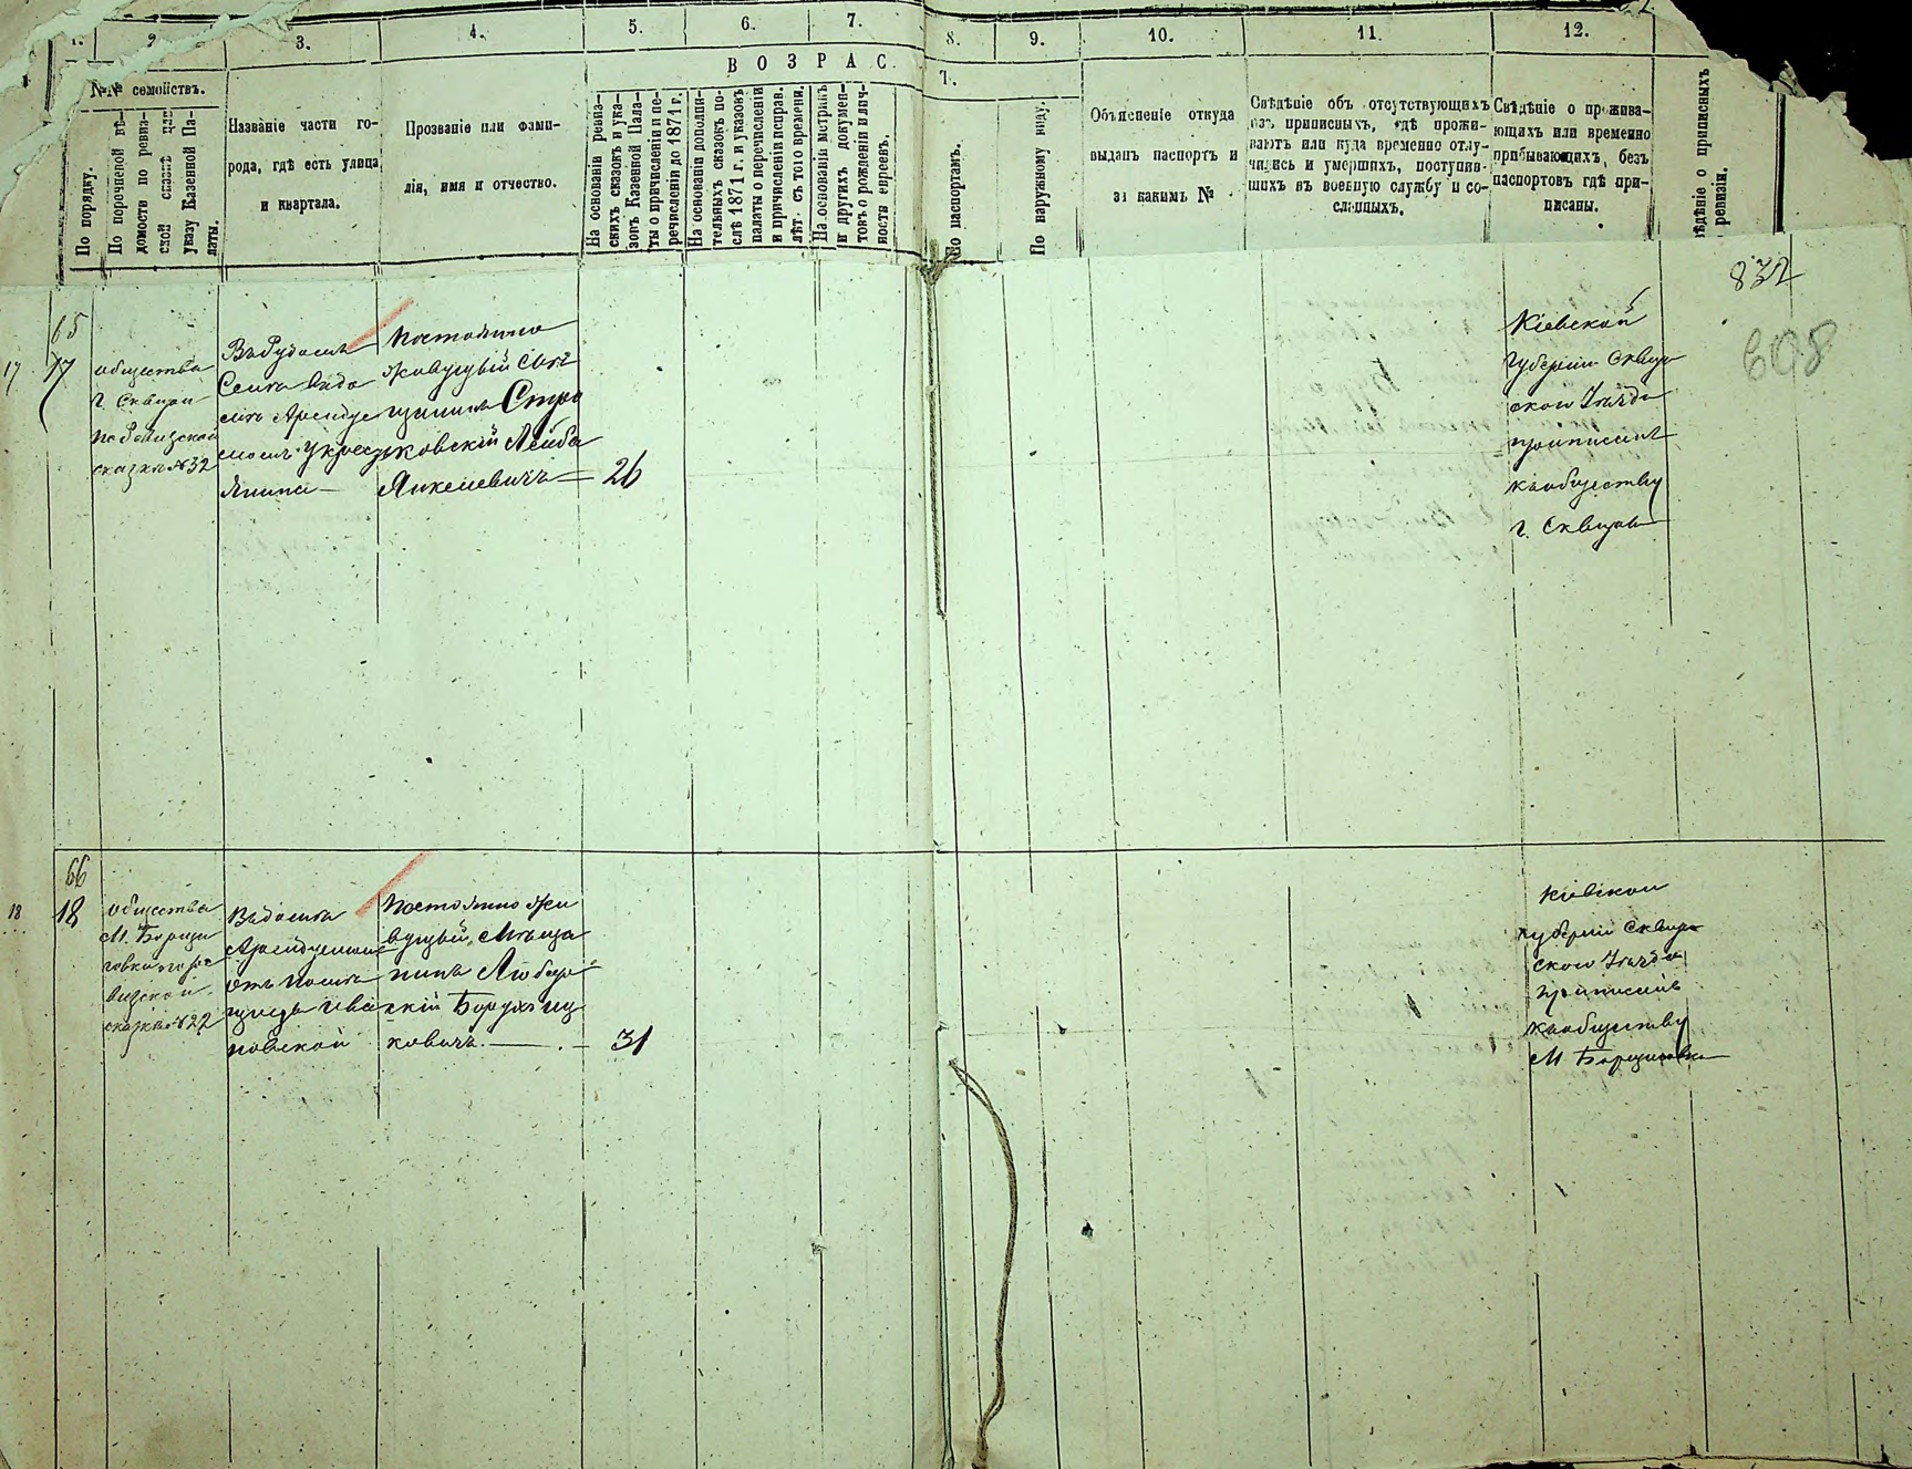 1. 2. 3. 4. 5. 6. 7. 8. 9. 10. 11. 12.
В О З Р А С Т.
№№ семействъ.
По порядку.
По перечневой вѣ-
домости по ревиз-
ской сказкѣ или
указу Казенной Па-
латы.
Названіе части го-
рода, гдѣ есть улица
и квартала.
Прозваніе или фами-
лія, имя и отчество.
На основаніи ревиз-
скихъ сказокъ и ука-
зовъ Казенной Пала-
ты о причисленіи и пе-
речисленіи до 1871 г.
На основаніи дополни-
тельныхъ сказокъ по-
слѣ 1871 г. и указовъ
палаты о перечисленіи
и причисленіи исправ.
лѣт. съ того времени.
На основаніи метрикъ
и другихъ докумен-
товъ о рожденіи и лич-
ности евреевъ.
По паспортамъ.
По наружному виду.
Объясненіе откуда
выданъ паспортъ и
за какимъ №
Свѣдѣніе объ отсутствующихъ
изъ приписныхъ, гдѣ прожи-
ваютъ или куда временно отлу-
чились и умершихъ, поступив-
шихъ въ военную службу и со-
сланныхъ.
Свѣдѣніе о прожива-
ющихъ или временно
прибывающихъ, безъ
паспортовъ гдѣ при-
писаны.
вѣдѣніе о приписныхъ
ревизіи.
832
698
65
17 17
общества
г. Сквири
по Ревизской
сказки №32
Постоянно
живущый Мѣ
щанинъ Стро
ковскій Лейба
Янкелевичъ
26
Кіевской
Губерніи Сквир
скою Уѣзда
приписанъ
къ обществу
г. Сквира
66
18 18
общества
М. Борщи
говки по ре
визской
сказки №22
Постоянно жи
вущый Мѣща
нинъ Любар
скій Борухъ Иц
ковичъ.
31
Кіевской
губерніи Сквир
скою Уѣзда
приписанъ
къ обществу
М Борщиговки